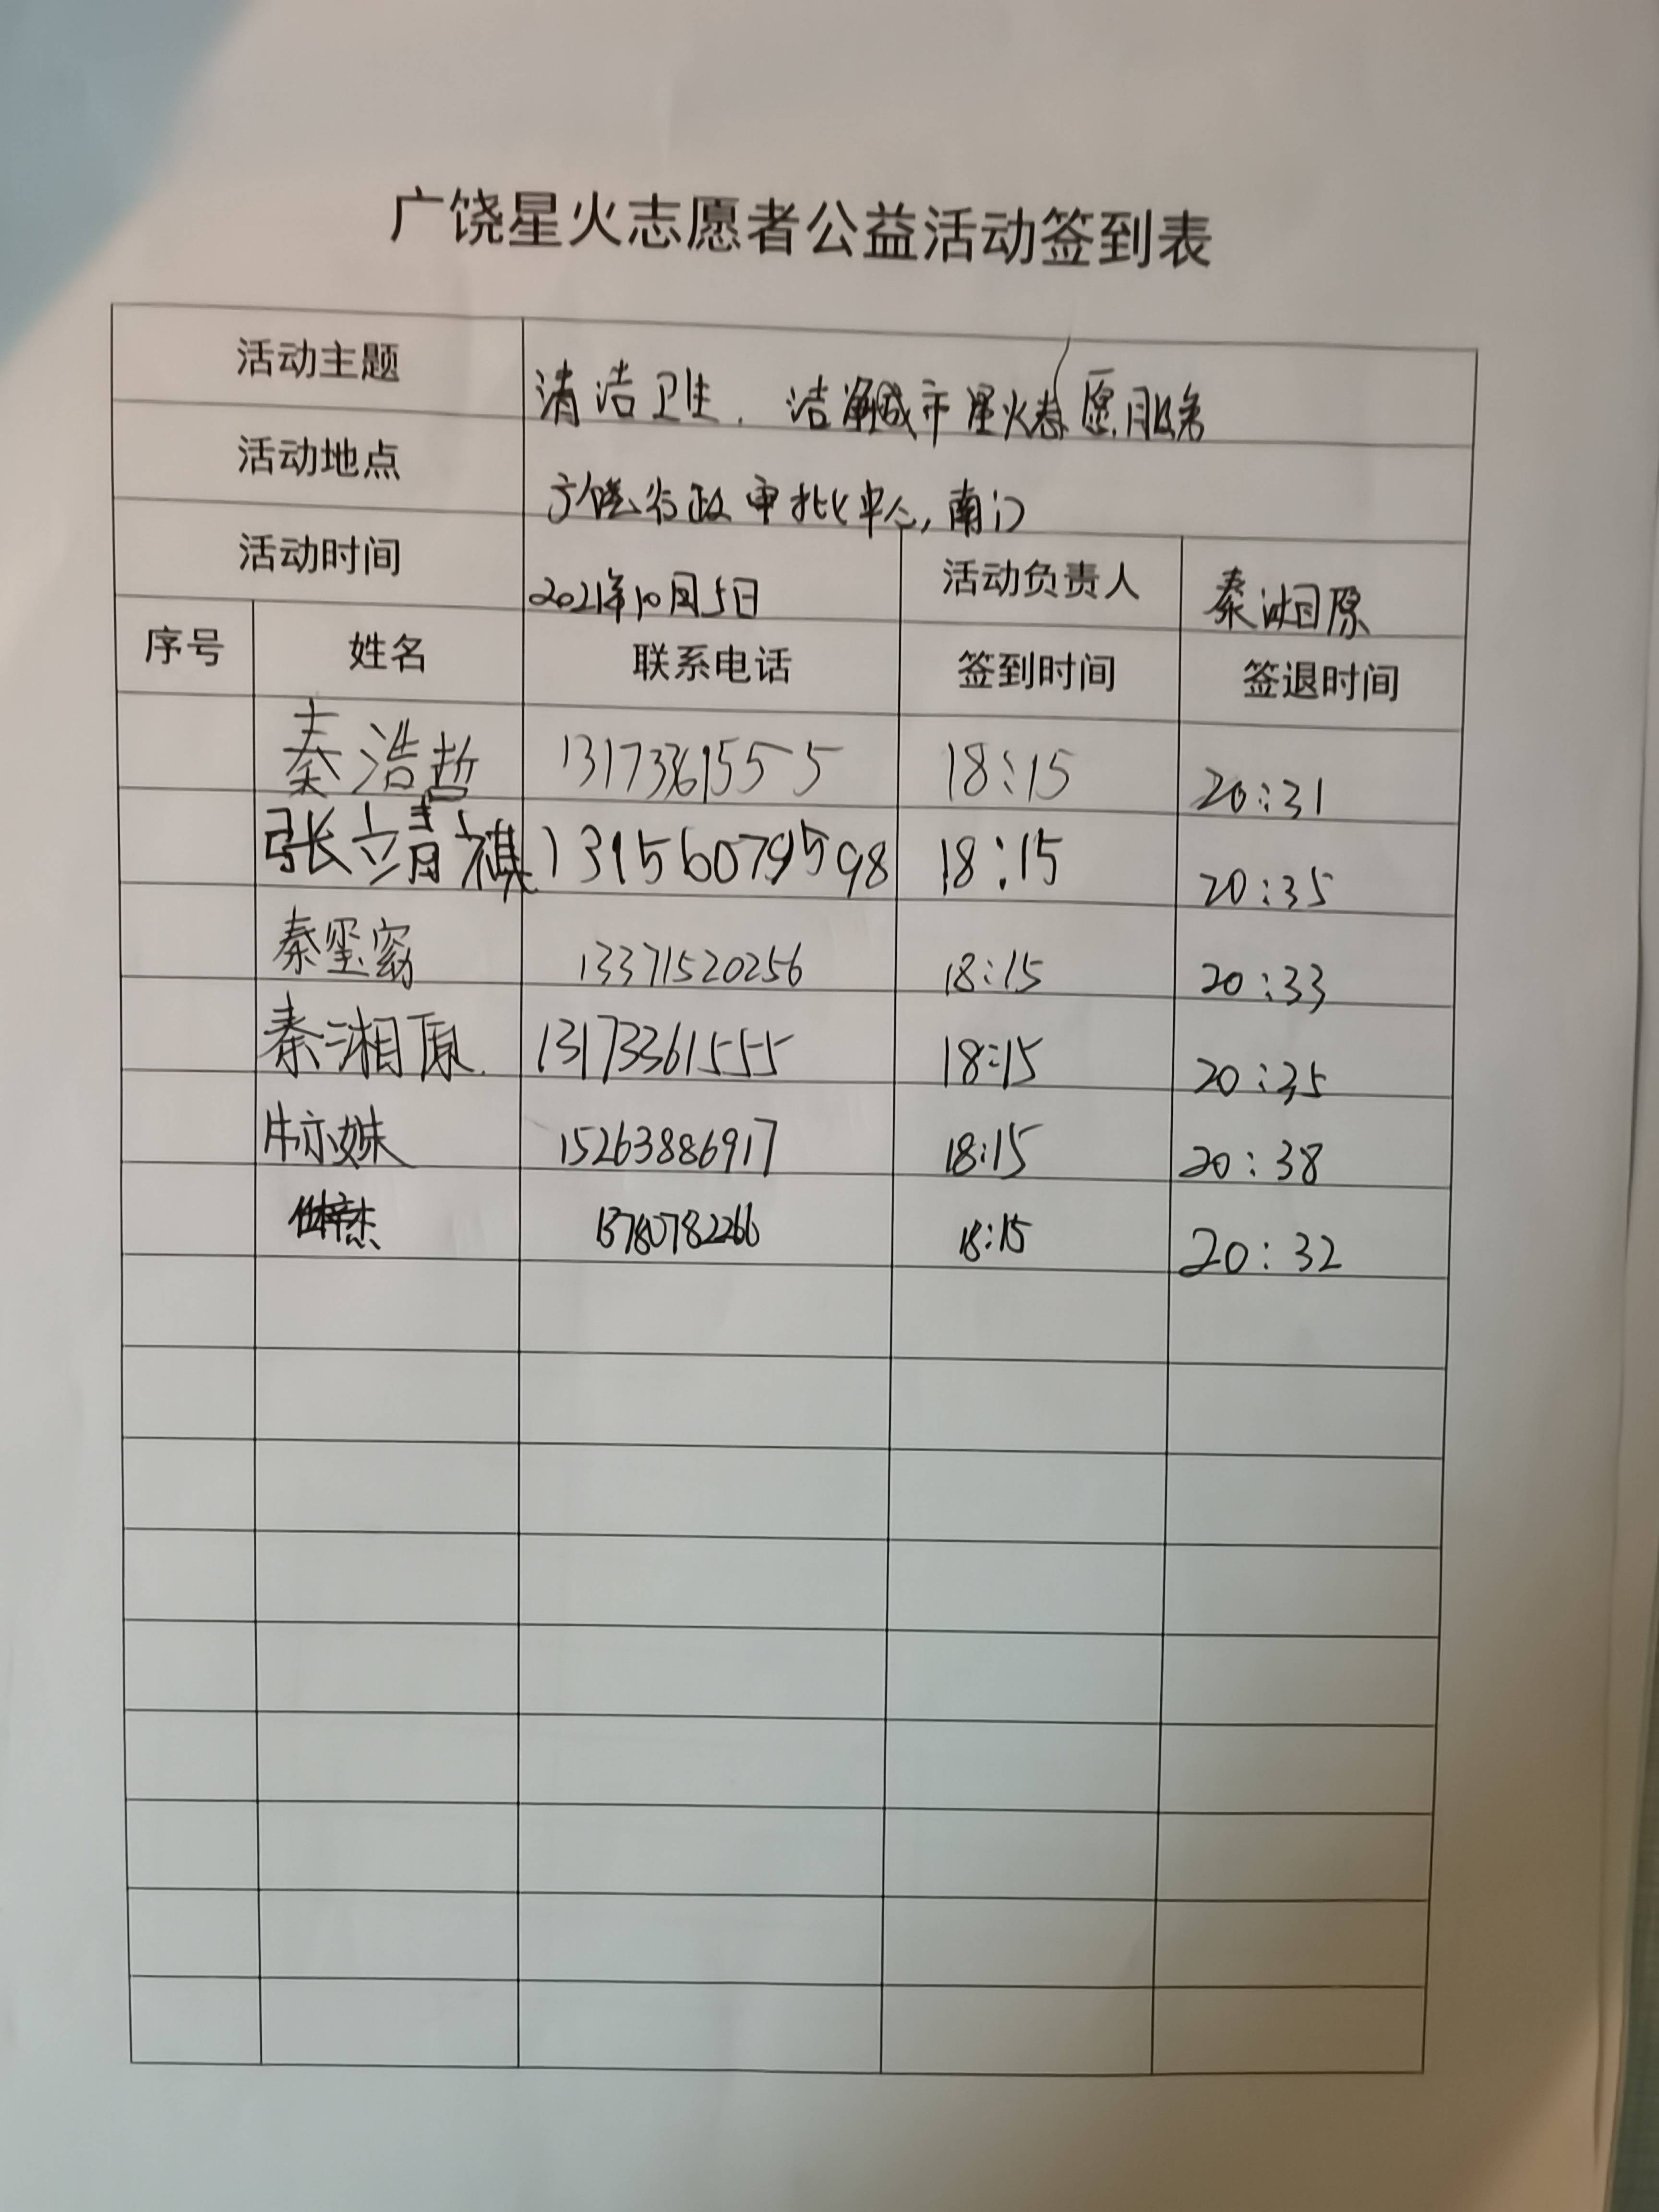 广饶星火志愿者公益活动签到表
活动主题 清洁卫生、洁净城市星火志愿服务
活动地点 广饶行政审批中心,南门
活动时间 2021年10月5日 活动负责人 秦湘原
序号 姓名 联系电话 签到时间 签退时间
秦浩哲 13173361555 18:15 20:31
张靖祺 13156079598 18:15 20:35
秦玺窈 13371520256 18:15 20:33
秦湘原 13173361555 18:15 20:35
牛亦姝 15263886917 18:15 20:38
13780782266 18:15 20:32